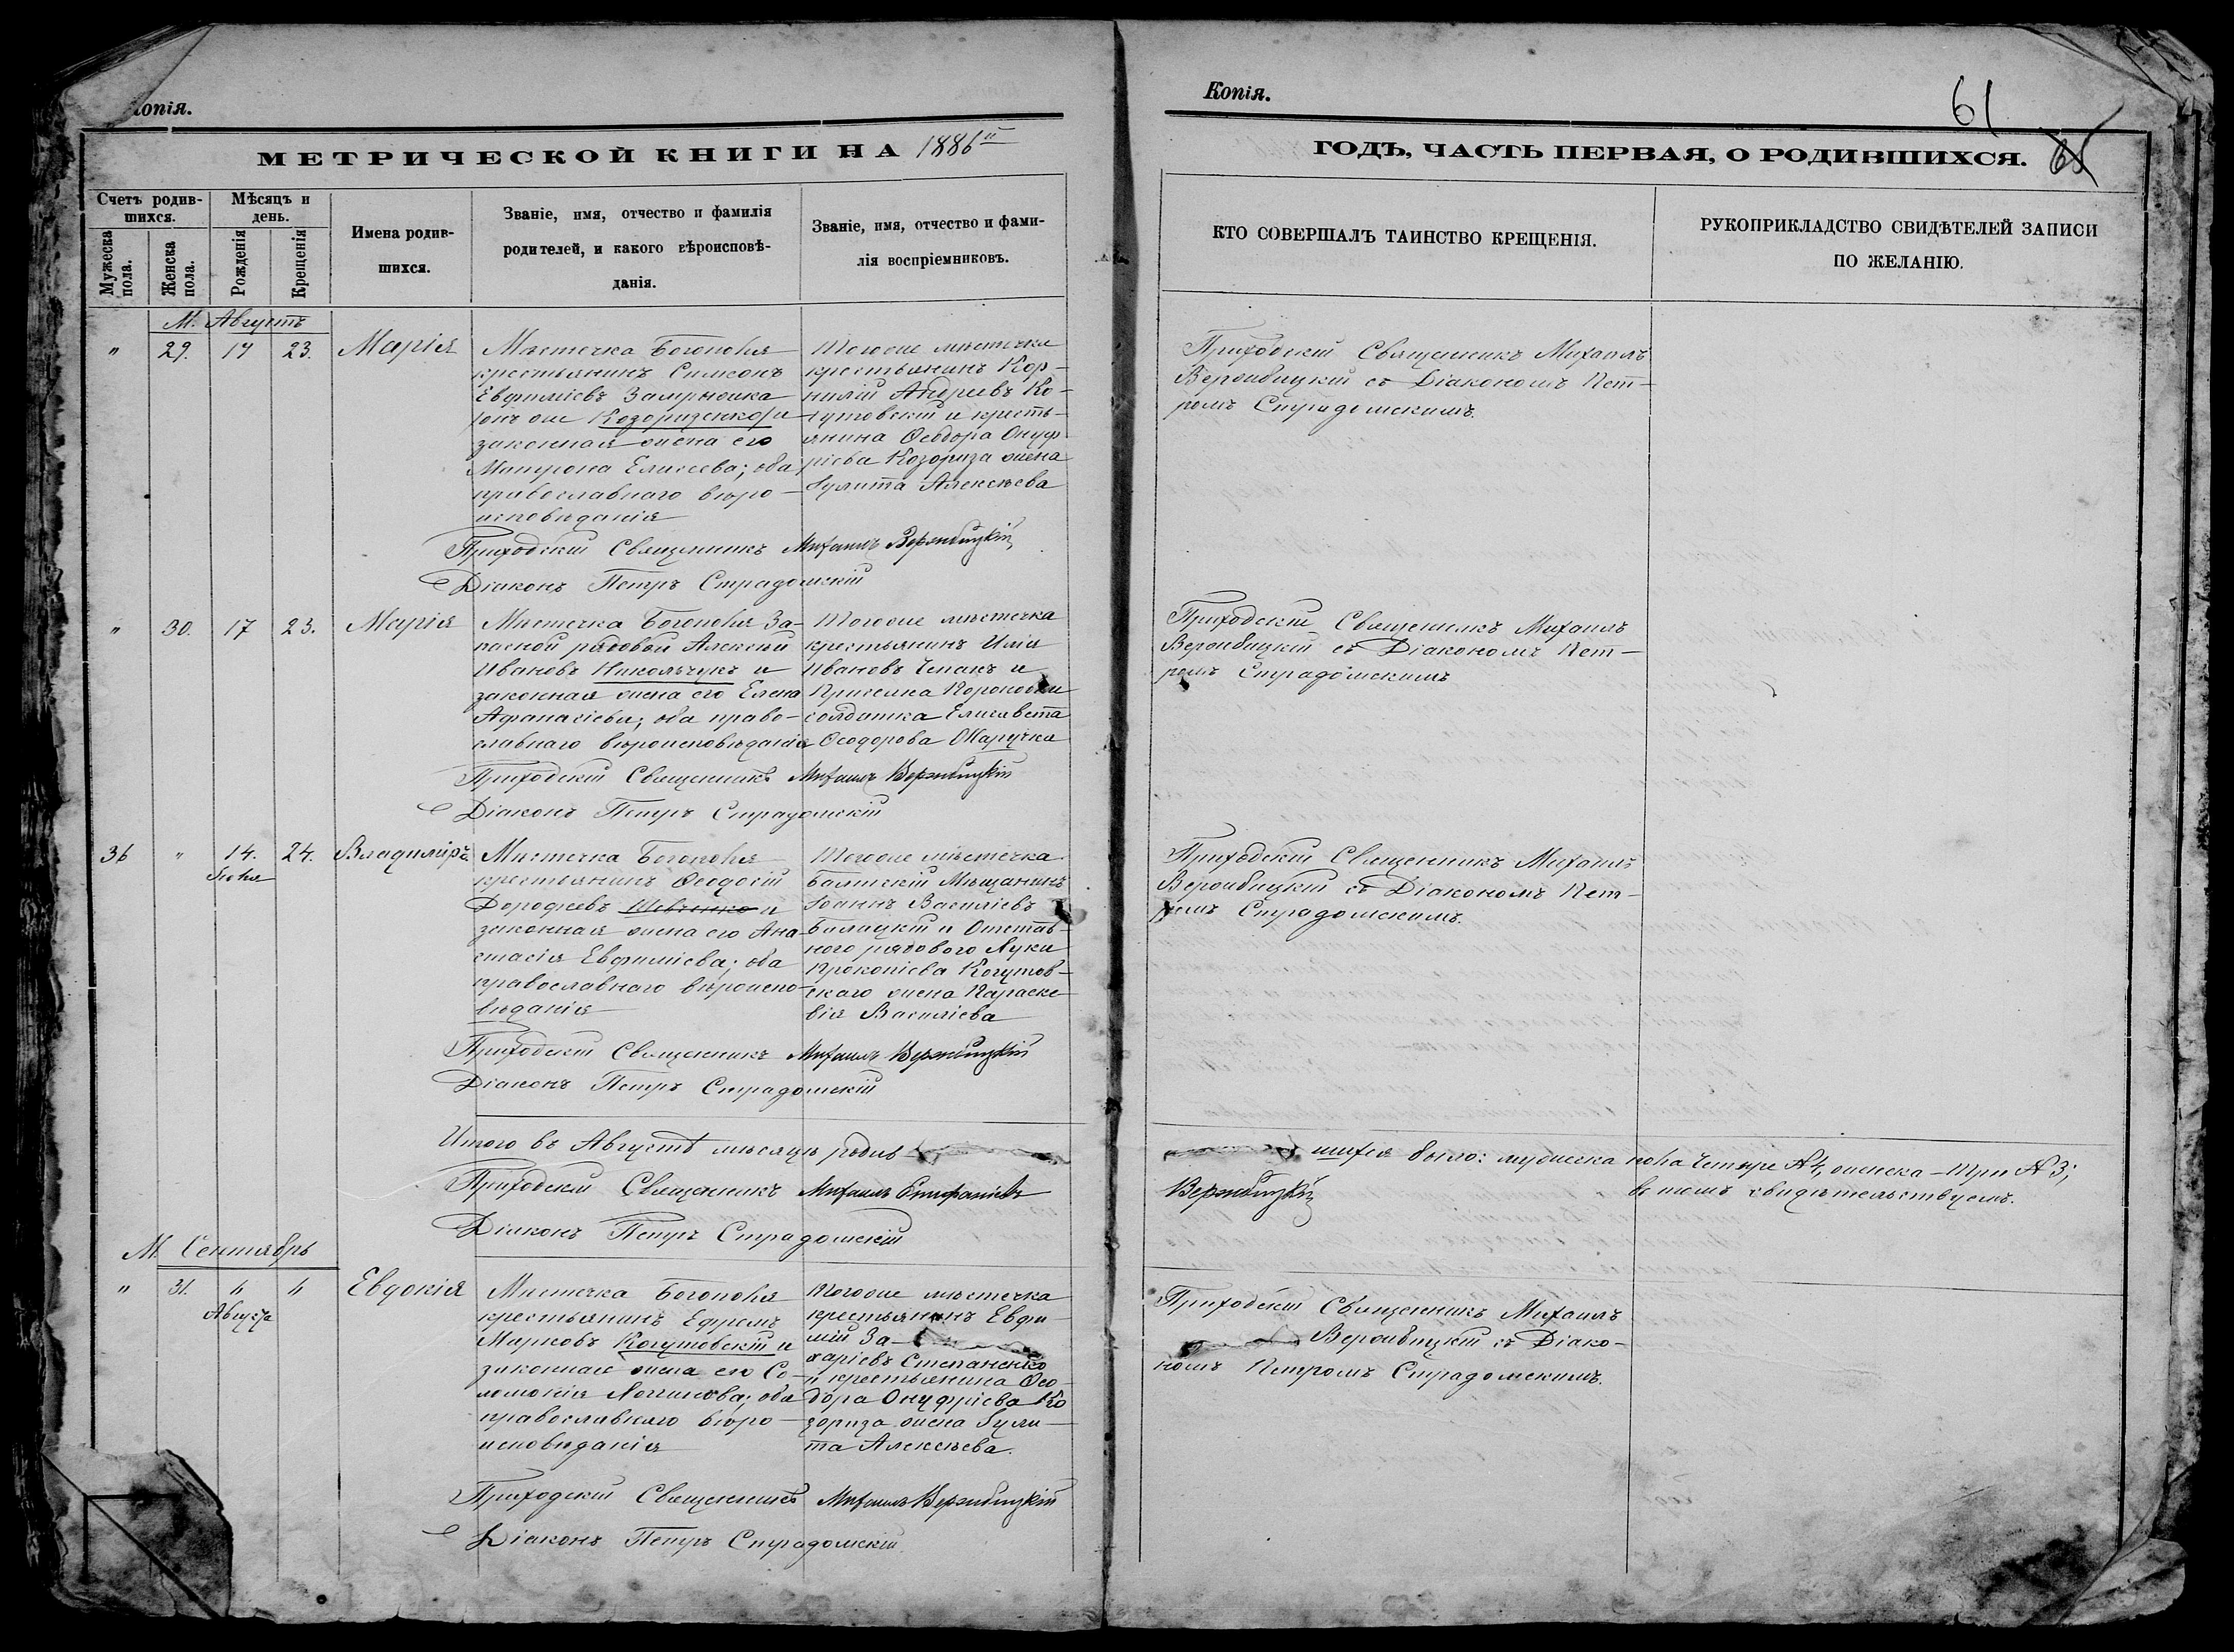 Копія.
МЕТРИЧЕСКОЙ КНИГИ НА 1886й
Счетъ родив-
шихся.
Мужеска
пола.
Женска
пола.
Мѣсяцъ и
день.
Рожденія
Крещенія
Имена родив-
шихся.
Званіе, имя, отчество и фамилія
родителей, и какого вѣроисповѣ-
данія.
Званіе, имя, отчество и фами-
лія воспріемниковъ.
М. Августъ
" 29. 17 23. Марія
Мѣстечка Богополя
крестьянинъ Симеонъ
Евфиміевъ
онъ же Козоризенко) и
законная жена его
Матрона Елисеева; оба
православнаго вѣро-
исповѣданія
Тогоже мѣстечка
крестьянинъ Кор-
нилій Андреевъ Ко-
гутовскій и кресть-
янина Ѳеодора Онуф
ріева Козориза жена
Іулита Алексѣева
Приходскій Священникъ Михаилъ Вержбицкій
Діаконъ Петръ Страдомскій
" 30. 17 23. Марія
Мѣстечка Богополя За-
пасной рядовой Алексій
Ивановъ Никольчукъ и
законная жена его Елена
Афанасіева; оба право-
славнаго вѣроисповѣданія
Тогоже мѣстечка
крестьянинъ Илія
Ивановъ Чепакъ и
солдатка Елисавета
Ѳеодорова
Приходскій Священникъ Михаилъ Вержбицкій
Діаконъ Петръ Страдомскій
36 " 14. 24. Владиміръ
Іюля
Мѣстечка Богополя
крестьянинъ Ѳеодосій
Дорофеевъ Шевченко и
законная жена его Ана-
стасія Евфиміева; оба
православнаго вѣроиспо-
вѣданія
Тогоже мѣстечка
Балтскій Мѣщанинъ
Іоаннъ Василіевъ
Билицкій и Отстав-
ного рядового Луки
Прокопіева Когутов-
скаго жена Параске-
вія Василіева
Приходскій Священникъ Михаилъ Вержбицкій
Діаконъ Петръ Страдомскій
Итого въ Августѣ мѣсяцѣ родив
Приходскій Священникъ Михаилъ Епифаніевъ
Діаконъ Петръ Страдомскій
М. Сентябрь
" 31. 4 4 Евдокія
Августа
Мѣстечка Богополя
крестьянинъ Ефремъ
Марковъ Когутовскій и
законная жена его Со-
ломонія Логгинова; оба
православнаго вѣро-
исповѣданія
Тогоже мѣстечка
крестьянинъ Евфи-
мій За-
харіевъ Степаненко
и крестьянина Ѳео-
дора Онуфріева Ко
зориза жена Іули-
та Алексѣева.
Приходскій Священникъ Михаилъ Вержбицкій
Діаконъ Петръ Страдомскій
Копія.
61
65
ГОДЪ, ЧАСТЬ ПЕРВАЯ, О РОДИВШИХСЯ.
КТО СОВЕРШАЛЪ ТАИНСТВО КРЕЩЕНІЯ.
РУКОПРИКЛАДСТВО СВИДѢТЕЛЕЙ ЗАПИСИ
ПО ЖЕЛАНІЮ.
Приходскій Священникъ Михаилъ
Вержбицкій съ Діакономъ Пет-
ромъ Страдомскимъ.
Приходскій Священникъ Михаилъ
Вержбицкій съ Діакономъ Пет-
ромъ Страдомскимъ
Приходскій Священникъ Михаилъ
Вержбицкій съ Діакономъ Пет-
ромъ Страдомскимъ.
шихся было: мужеска пола четыре № 4, женска - три № 3;
въ томъ свидѣтельствуемъ.
Вержбицкій
Приходскій Священникъ Михаилъ
Вержбицкій съ Діако-
номъ Петромъ Страдомскимъ.